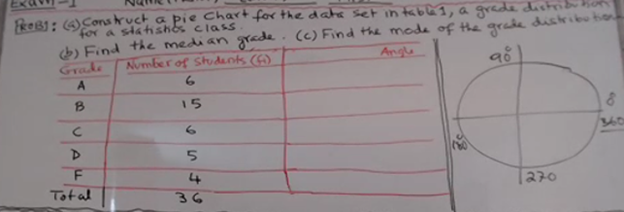 Exam-1
PROB1: (a) Construct a pie chart for the data set in table 1, a grade distribution
for a statistics class.
(b) Find the median grade. (c) Find the mode of the grade distribution
Grade Number of Students (fi) Angle
A 6
B 15
C 6
D 5
F 4
Total 36
90°
0°
360
180
270